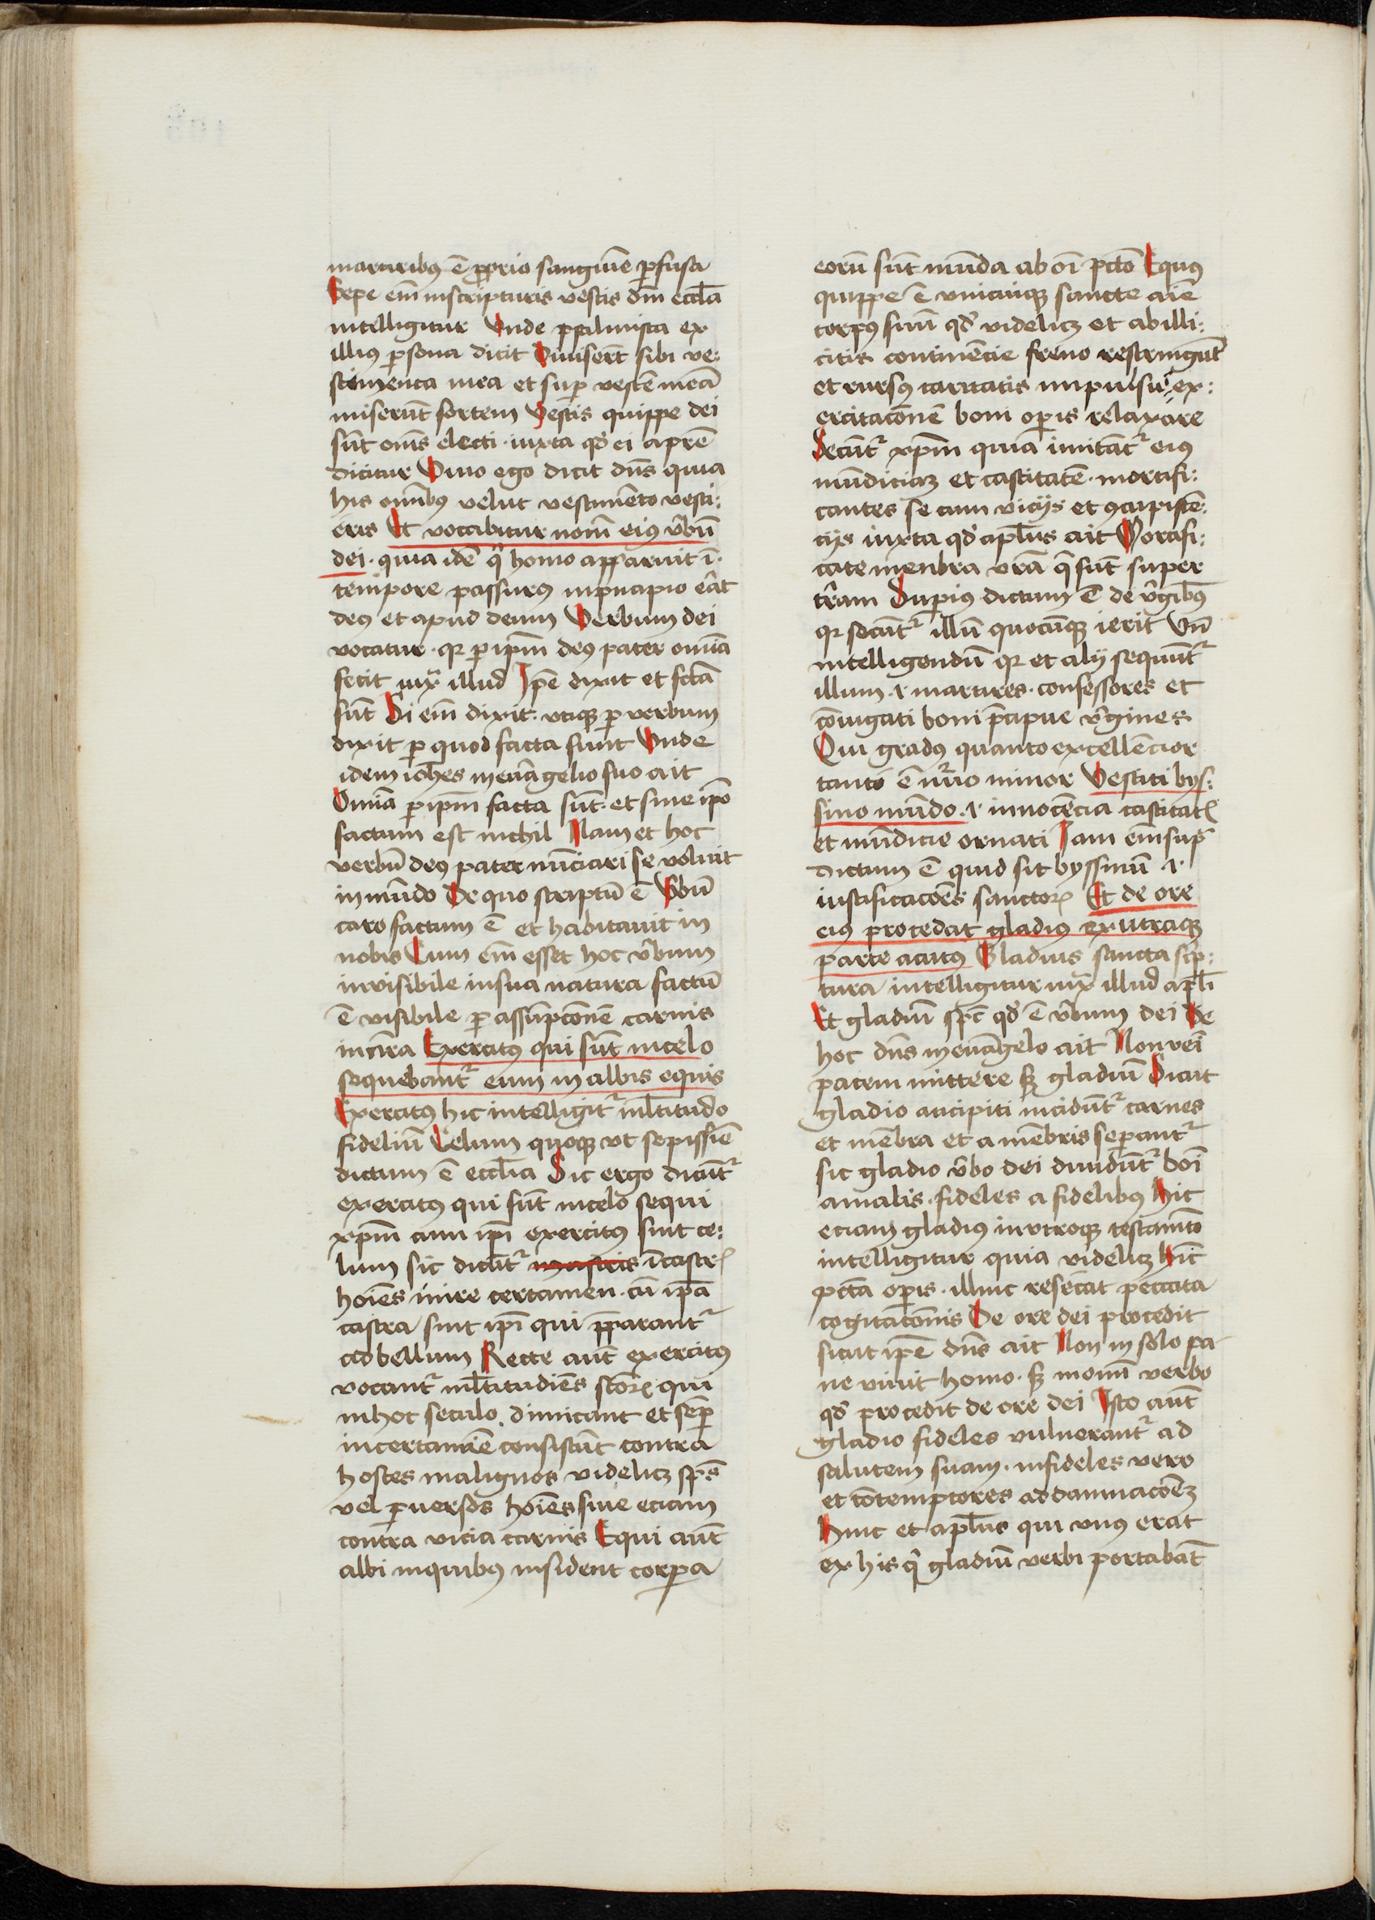 martiribus ē pprio sanguīe pfusa
Sepe em̄ inscripturis vestis dnī ecclīa
intelligitur Unde psalmista ex
illius psona dicit Diuiserūt sibi ve:
stimenta mea et sup vestē meā
miserūt sortem Vestis quippe dei
sūt oms̄ electi · iuxta qd' ei apr̄e
dicitur Viuo ego dicit dns̄ quia
his omībus velut vestimēto vesti:
eris Et vocabitur nomē eius v̄bū
dei · quia idē q' homo apparuit ī ·
tempore passurus inpncipio erat
deus et apud deum Verbum dei
vocatur · qr p ipm̄ deus pater omīa
fecit iux̄ illud Ipē dixit et fcā
sūt Si em̄ dixit: vtiq p verbum
dixit p quod facta sunt Unde
idem ioh̄es in euāgelio suo ait
Omīa p ipm̄ facta sūt · et sine ipo
factum est nichil Nam et hoc
verbū deus pater nūciari se voluit
in mūdo De quo scriptū ē Vbū
caro factum ē et habitauit in
nobis Cum em̄ esset hoc v̄bum
invisibile insua natura factū
ē visibile p assūpcōnem carnis
incīra Exercitus qui sūt incelo
sequebant' eum in albis equis
Exercitus hic intelligit' ml̄titudo
fideliū Celum quoq vt sepissīe
dictum ē ecclīa Sic ergo dicūt'
exercitus qui sūt incelo sequi
xpm̄ cum ipī exercitus sint ce:
lum sic dicūt' in castris ī castr
hoīes inire certamen · cū ipā
castra sint ipī qui pparant'
ad bellum Recte aut̄ exercitus
vocant' ml̄titudiēs sctōr qui
in hoc seculo dimicant et semp
incertamīe consistūt contra
hostes malignos videlicz spūs
vel puersos hoīes siue eciam
contra vicia carnis Equi aut̄
albi inquibus insident corpora
eorū sūt mūda ab oī pctō Equus
quippe ē vnicuiq sancte aīe
corpus suū qd' videlicz et ab illi:
citis continēcie freno restringūt
et rursus caritatis impulsu ex:
ercitacōnē boni opis relaxare
Secūt' xpm̄ quia imitāt' eius
mūdiciaz et castitatē · mortifi:
cantes se cum vicijs et 9cupistē:
cijs iuxta qd' aplūs ait Mortifi:
cate menbra vrā q̄ sūt super
tr̄am Superius dictum ē de v̄gibus
qr secūt' illū quocūq ierit Vn̄
intelligendū qr et alij sequūt'
illum · i · martires · confessores et
cōiugati boni p̄cipue v̄gines
Qui gradus quanto excellēcior
tanto ē nūo minor Vestiti bys:
sino mūdo · i · innocēcia castitat
et mūdicie ornati Iam em̄ sup
dictum ē quid sit byssinū · i ·
iustificacōes sanctor Et de ore
eius procedat gladius ex utraque
parte acutus Gladius sancta scp:
tura intelligitur iux̄ illud apl̄i
Et gladiū spc qd' ē v̄bum dei De
hoc dns̄ in euāgelo ait Non veī
pacem mittere s gladiū Sicut
gladio ancipiti incidūt' carnes
et mēbra et a mēbris sepant'
sic gladio v̄bo dei diuidūt' boī
a malis · fideles a fidelibus Hic
eciam gladius in vtroq testamēto
intelligitur quia videlicz hīc
pctā opis · illinc resecat peccata
cogitacōnis De ore dei procedit
sicut ipē dns̄ ait Non in solo pa
ne viuit homo · s in omī verbo
qd' procedit de ore dei Isto aut̄
gladio fideles vulnerant' ad
salutem suam · infideles vero
et cōtemptores ad damnacōez
Hinc et aplūs qui vnus erat
ex his q' gladiū verbi portabāt